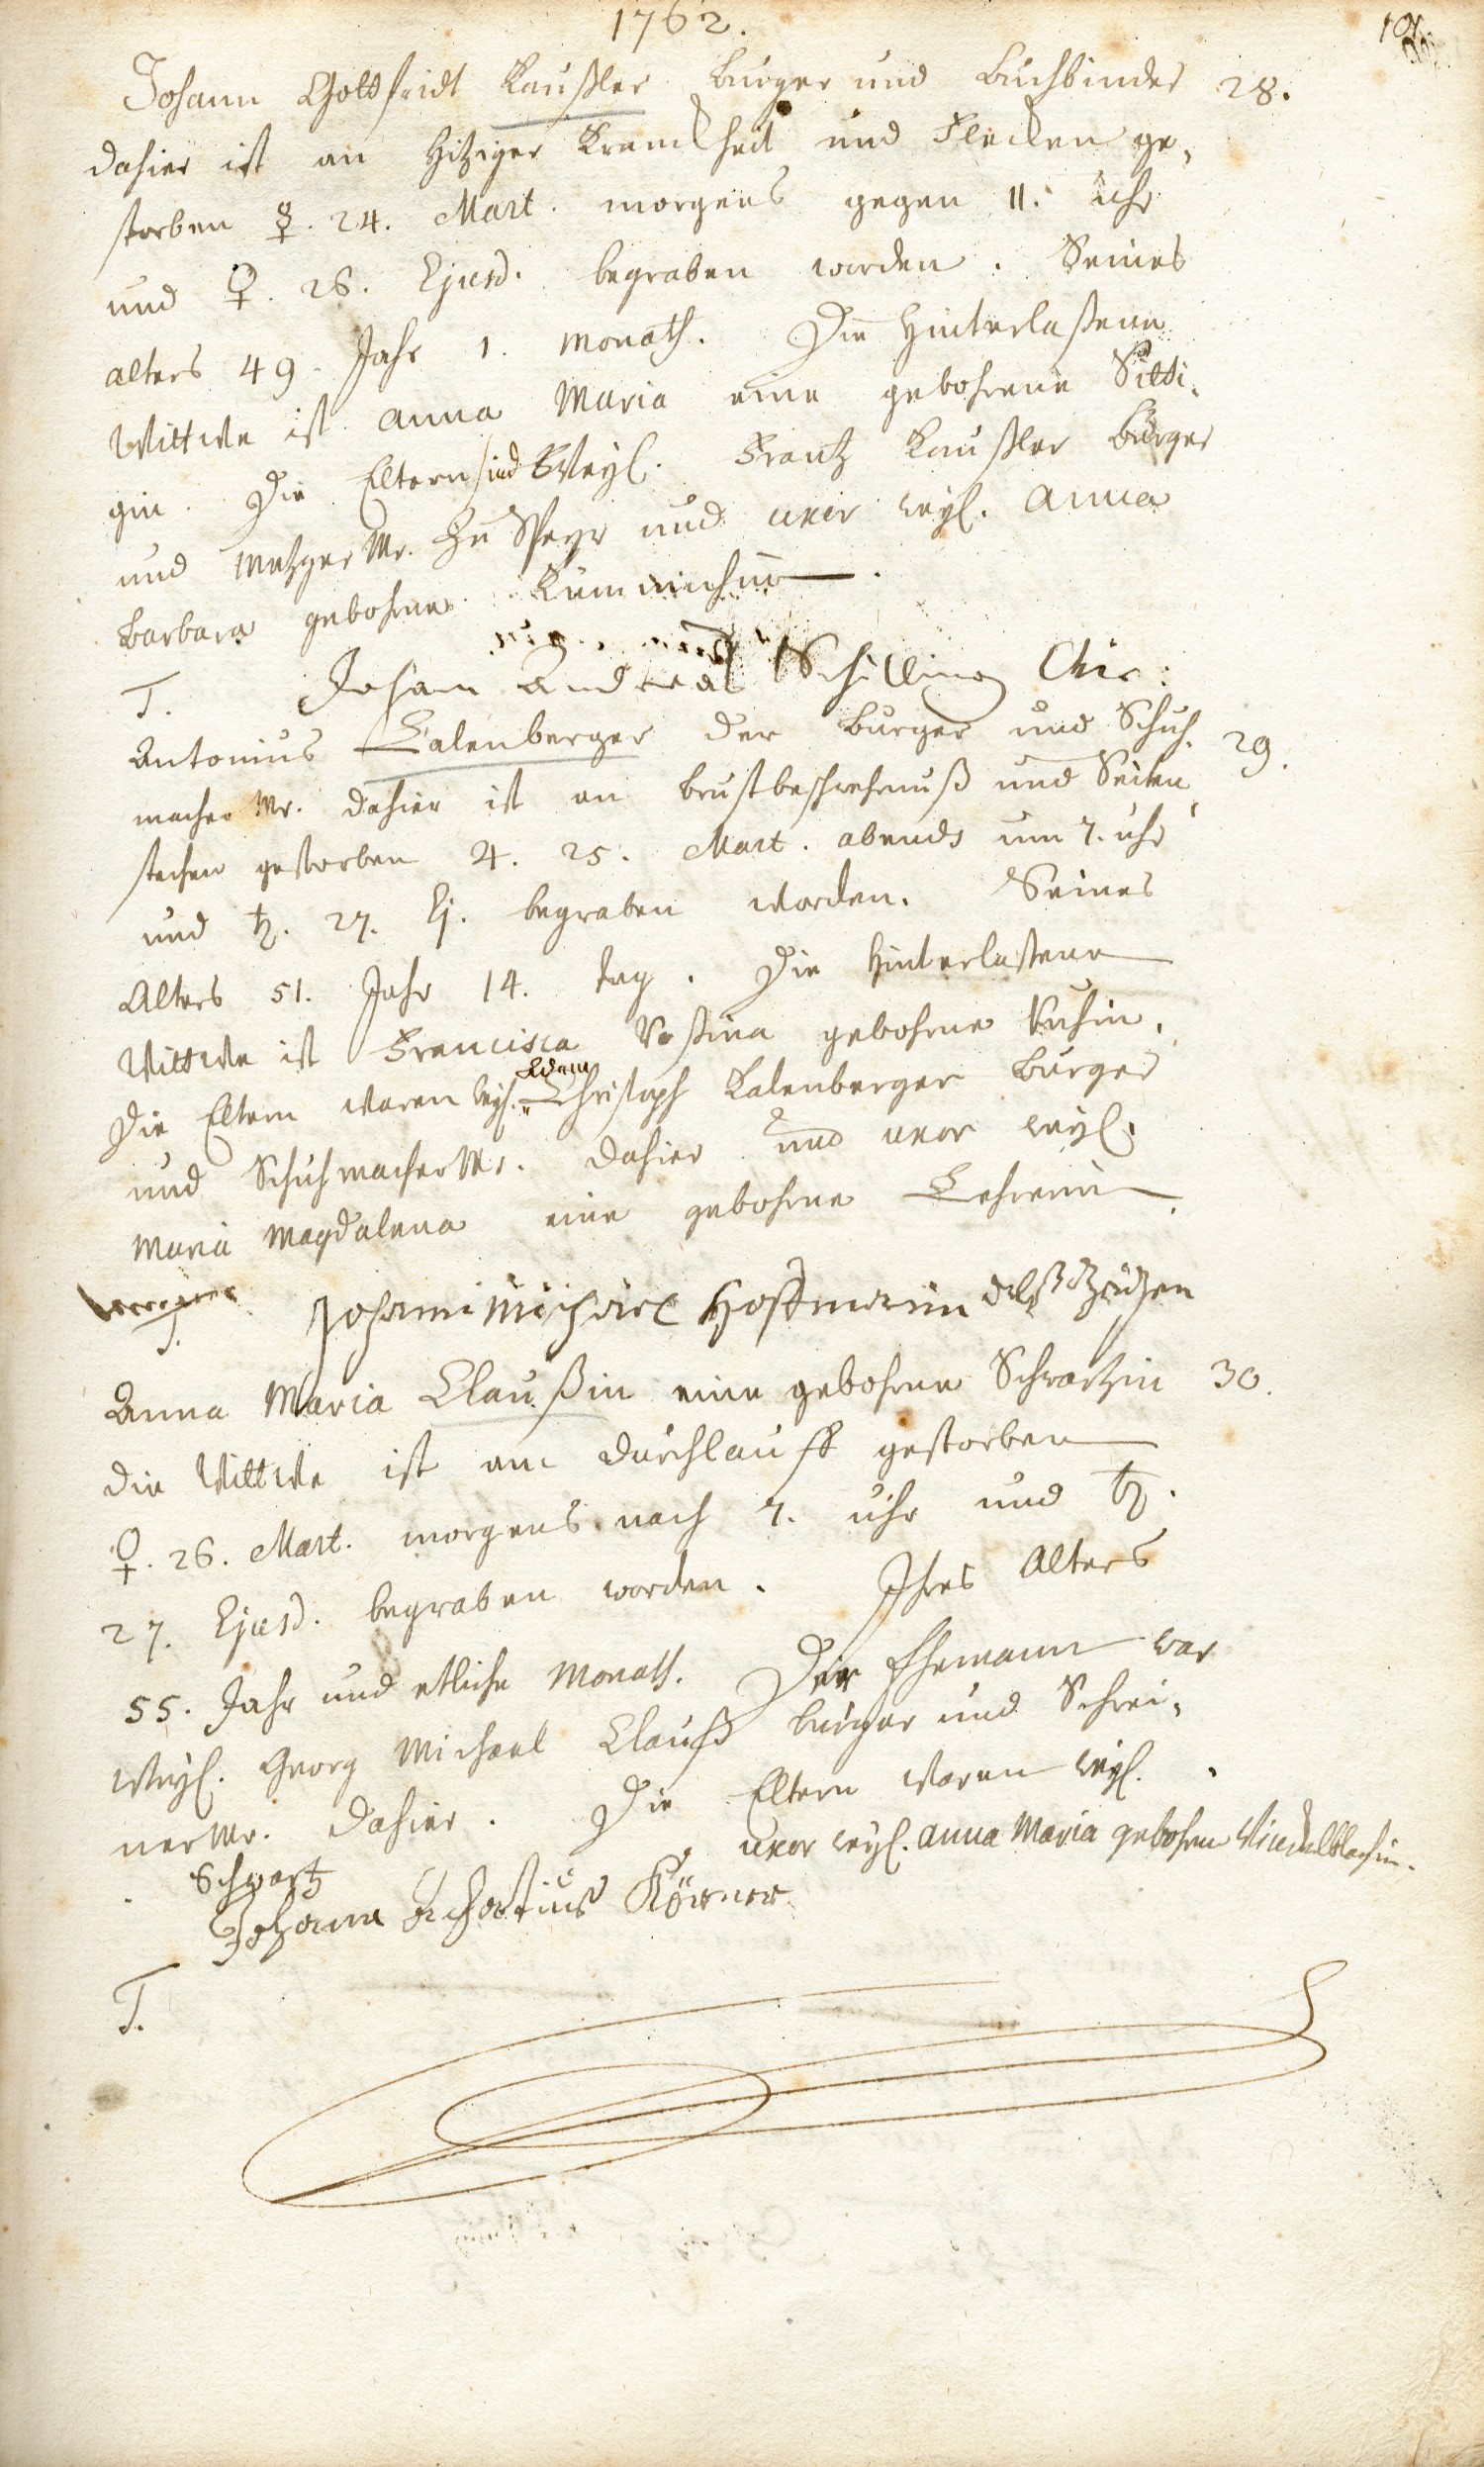 1762.
Johann Gottfridt Kaußler Burger und Buchbinder 28.
dahier ist an hitziger Kranckheit und Flecken ge-
storben ☿. 24. Mart. morgens gegen 11. uhr
und ♀. 26. Ejusd. begraben worden. Seines
alters 49. Jahr 1. Monath. Die hinterlaßene
Wittwe ist anna Maria eine gebohrene Sitti-
gin. Die Eltern sind Weyl. Frantz Kaußler Bürger
und Metzger Mr. zu Speyr und uxor weyl. Anna
Barbara gebohrne
T. Johann Andreas Schilling Chir:
Antonius Kalenberger der Burger und Schuh- 29.
macher Mr. dahier ist an brustbeschwehrnuß und Seiten
stechen gestorben ♃. 25. Mart. abends um 7. uhr
und ♄. 27. Ej. begraben worden. Seines
Alters 51. Jahr 14. tag. Die hinterlaßene
Wittwe ist Francisca Rosina gebohrne Kuhin.
Die Eltern waren weyl. Adam Christoph Kalenberger Bürger
und Schuhmacher Mr. dahier und uxor weyl.
Maria Magdalena eine gebohrne Lehrerin.
T. Johann Michael Hoffmann als Zeügen
Anna Maria Claußin eine gebohrne Schwartzin 30.
die Wittwe ist am durchlauff gestorben
♀. 26. Mart. morgens nach 7. uhr und ♄.
27. Ejusd. begraben worden. Ihres Alters
55. Jahr und etliche Monath. Der Ehemann war
Weyl. Georg Michael Clauß burger und Schrei-
ner Mr. dahier. Die Eltern waren weyl.
Schwartz uxor weyl. Anna Maria gebohrne
Johann Körner
T.